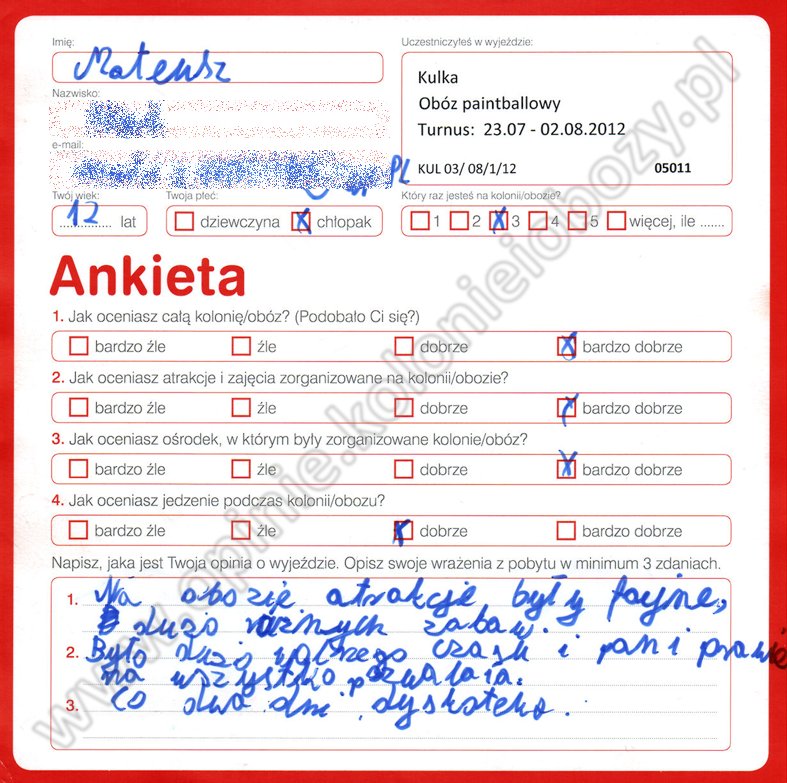 Imię:
Mateusz
Uczestniczyłeś w wyjeździe:
Kulka
Obóz paintballowy
Turnus: 23.07 - 02.08.2012
KUL 03/ 08/1/12 05011
Nazwisko:
e-mail:
PL
Twój wiek:
12 lat
Twoja płeć:
dziewczyna X chłopak
Który raz jesteś na kolonii/obozie?
1 2 X 3 4 5 więcej, ile .......
Ankieta
1. Jak oceniasz całą kolonię/obóz? (Podobało Ci się?)
bardzo źle źle dobrze X bardzo dobrze
2. Jak oceniasz atrakcje i zajęcia zorganizowane na kolonii/obozie?
bardzo źle źle dobrze X bardzo dobrze
3. Jak oceniasz ośrodek, w którym były zorganizowane kolonie/obóz?
bardzo źle źle dobrze X bardzo dobrze
4. Jak oceniasz jedzenie podczas kolonii/obozu?
bardzo źle źle X dobrze bardzo dobrze
Napisz, jaka jest Twoja opinia o wyjeździe. Opisz swoje wrażenia z pobytu w minimum 3 zdaniach.
1. Na obozie atrakcje były fajne,
dużo różnych zabaw.
2. Było dużo wolnego czasu i pani prawie
na wszystko pozwalała.
3. Co dwa dni dyskoteka.
www.opinie.kolonieiobozy.pl